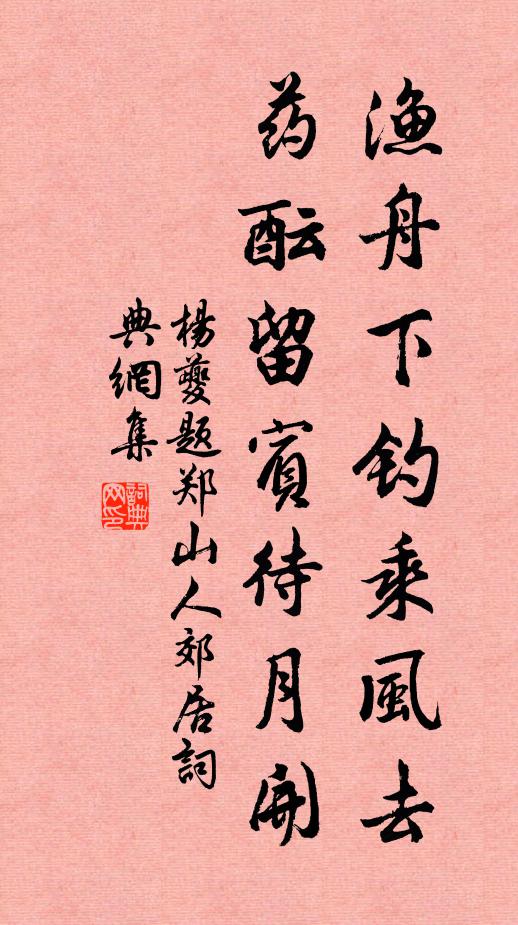 渔舟下钓乘風去
药酝留賓待月開
楊夔题郑山人郊居詞
典網集
詞典
网印